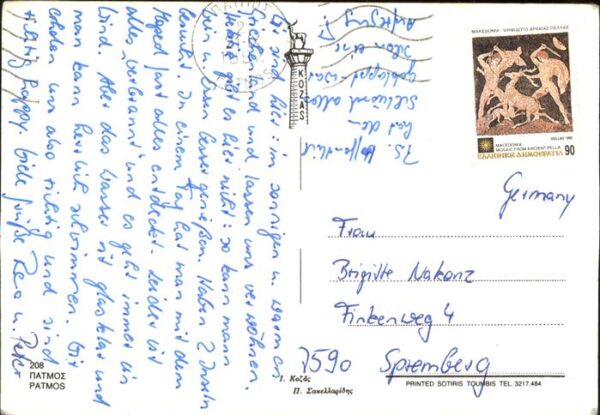 Wir sind hier im sonnigen u. warmen
Griechenland und lassen uns verwöhnen.
Hektik gibt es hier nicht: so kann man
u. Essen besser genießen. Haben 2 Inseln
besucht. In einem Tag hat man mit dem
Moped fast alles entdeckt. Leider ist
alles verbrannt und es geht immer ein
Wind. Aber das Wasser ist glasklar und
man kann herrlich schwimmen. Wir
erholen uns also richtig und sind
richtig happy. Viele Grüße Rea u. Peter
P.S. Hoffentlich
hat dem
alles
geklappt - war
schon eine
Aufregung!
KOZAS
ΜΑΚΕΔΟΝΙΑ - ΨΗΦΙΔΩΤΟ ΑΡΧΑΙΑΣ ΠΕΛΛΑΣ
HELLAS 1992
MACEDONIA
MOSAIC FROM ANCIENT PELLA
ΕΛΛΗΝΙΚΗ ΔΗΜΟΚΡΑΤΙΑ 90
Germany
Frau
Brigitte Nakonz
Finkenweg 4
7590 Spremberg
208
ΠΑΤΜΟΣ
PATMOS
Ι. Κοζάς
Π. Σακελλαρίδης
PRINTED SOTIRIS TOUMBIS TEL. 3217.484